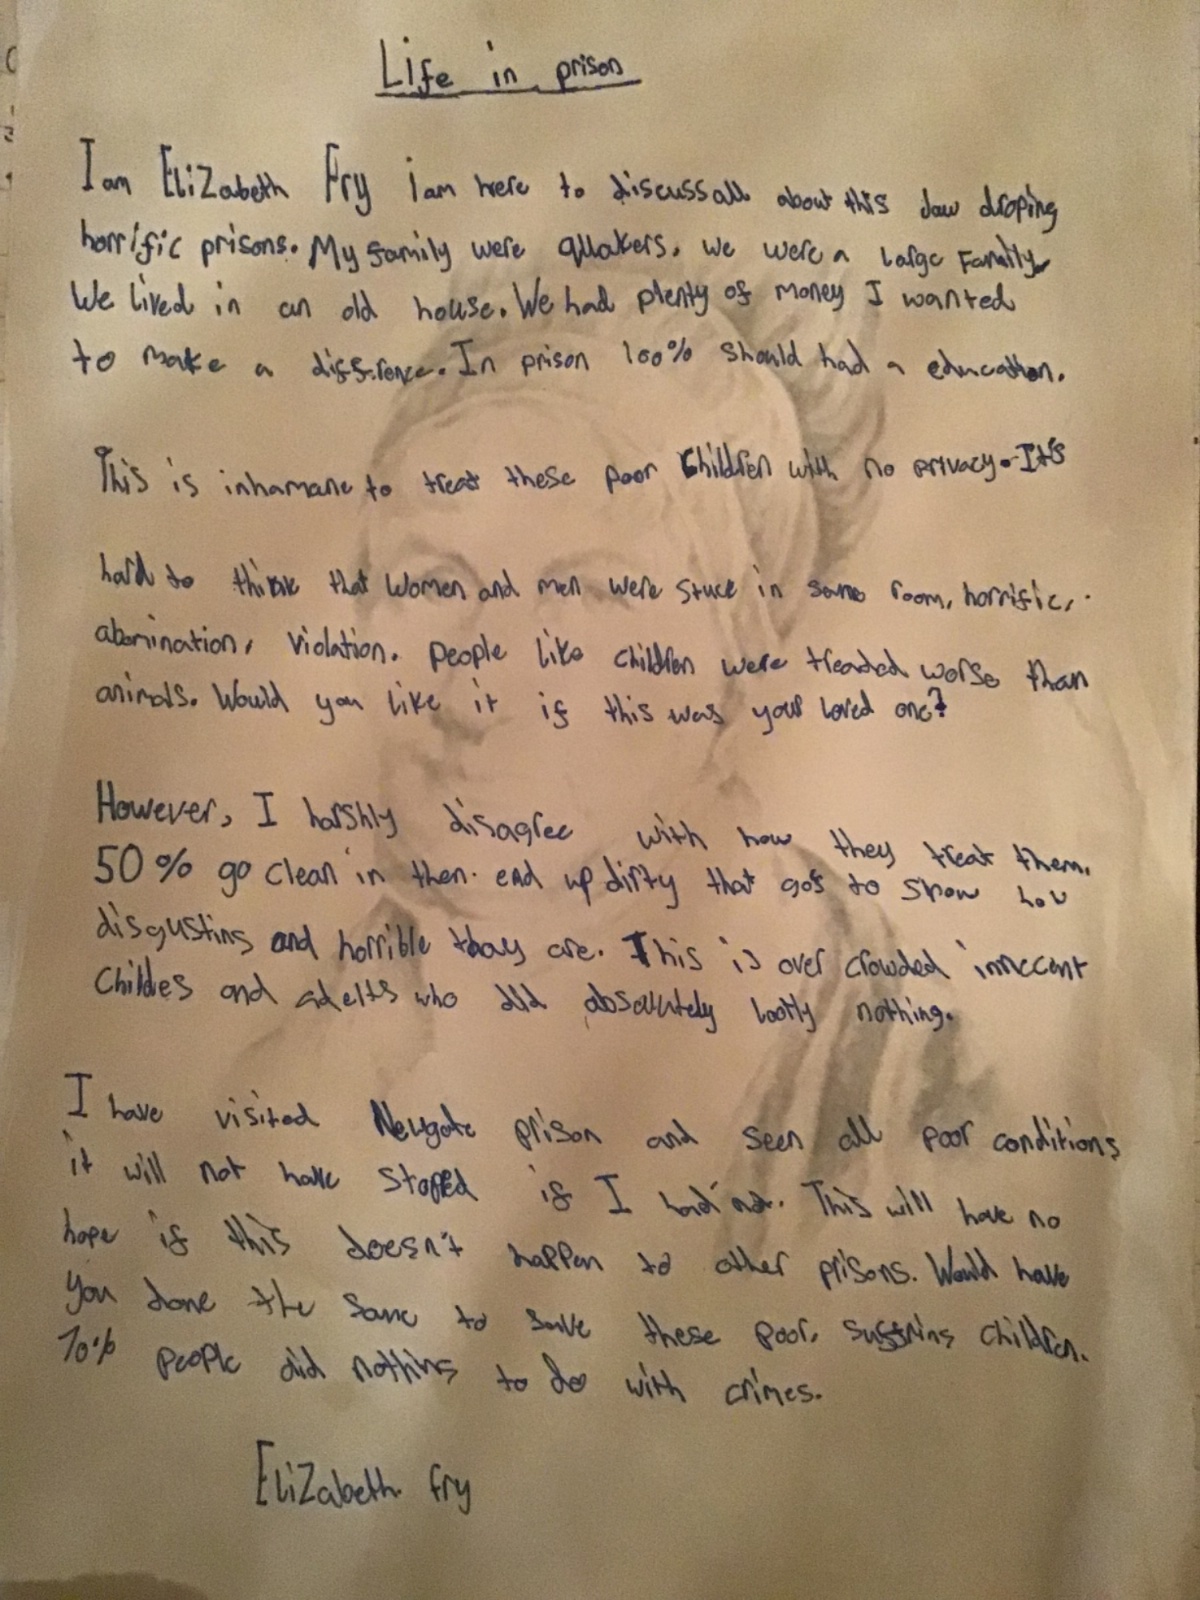 Life in prison
I am EliZabeth Fry i am here to discuss all about this Jaw droping
horrific prisons. My family were quakers. we were a large Family
We lived in an old house. We had plenty of money I wanted
to make a diffrence. In prison 100% should had a education.
This is inhamane to treat these poor Children with no privacy. It's
hard to think that Women and men were stuck in same room, horrific,
abomination, violation. people like children were treaded worse than
animals. Would you like it if this was your loved one?
However, I harshly disagree with how they treat them.
50% go clean in then end up dirty that gos to show how
disgusting and horrible they are. This is over crowded innccent
Childes and adelts who did absolutely nothing.
I have visited Newgate prison and seen all poor conditions
it will not have stoped if I had not. This will have no
hope if this doesn't happen to other prisons. Would have
you done the same to save these poor, suffring children.
70% people did nothing to do with crimes.
EliZabeth fry